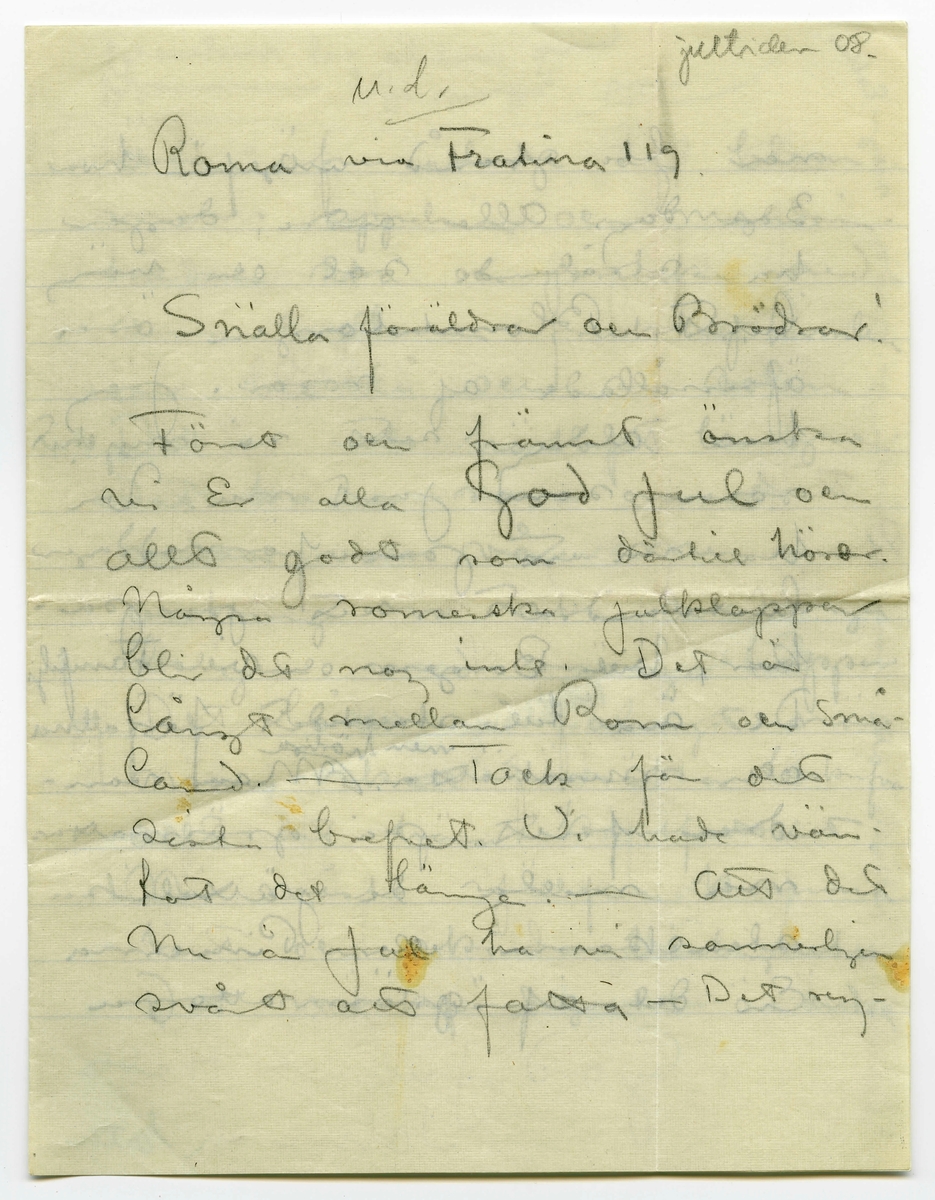 jultiden 08.
u.d.
Roma via Fratina 119
Snälla föräldrar och Brödrar!
Först och främst önska
vi Er alla God Jul och
allt godt som därtill hörer.
Några romerska julklappar
blir det nog inte. Det är
långt mellan Rom och Små-
land. — Tack för det
sista brefvet. Vi hade vän-
tat det länge. — Att det
nu är Jul ha vi sannerligen
svårt att fatta — Det reg-